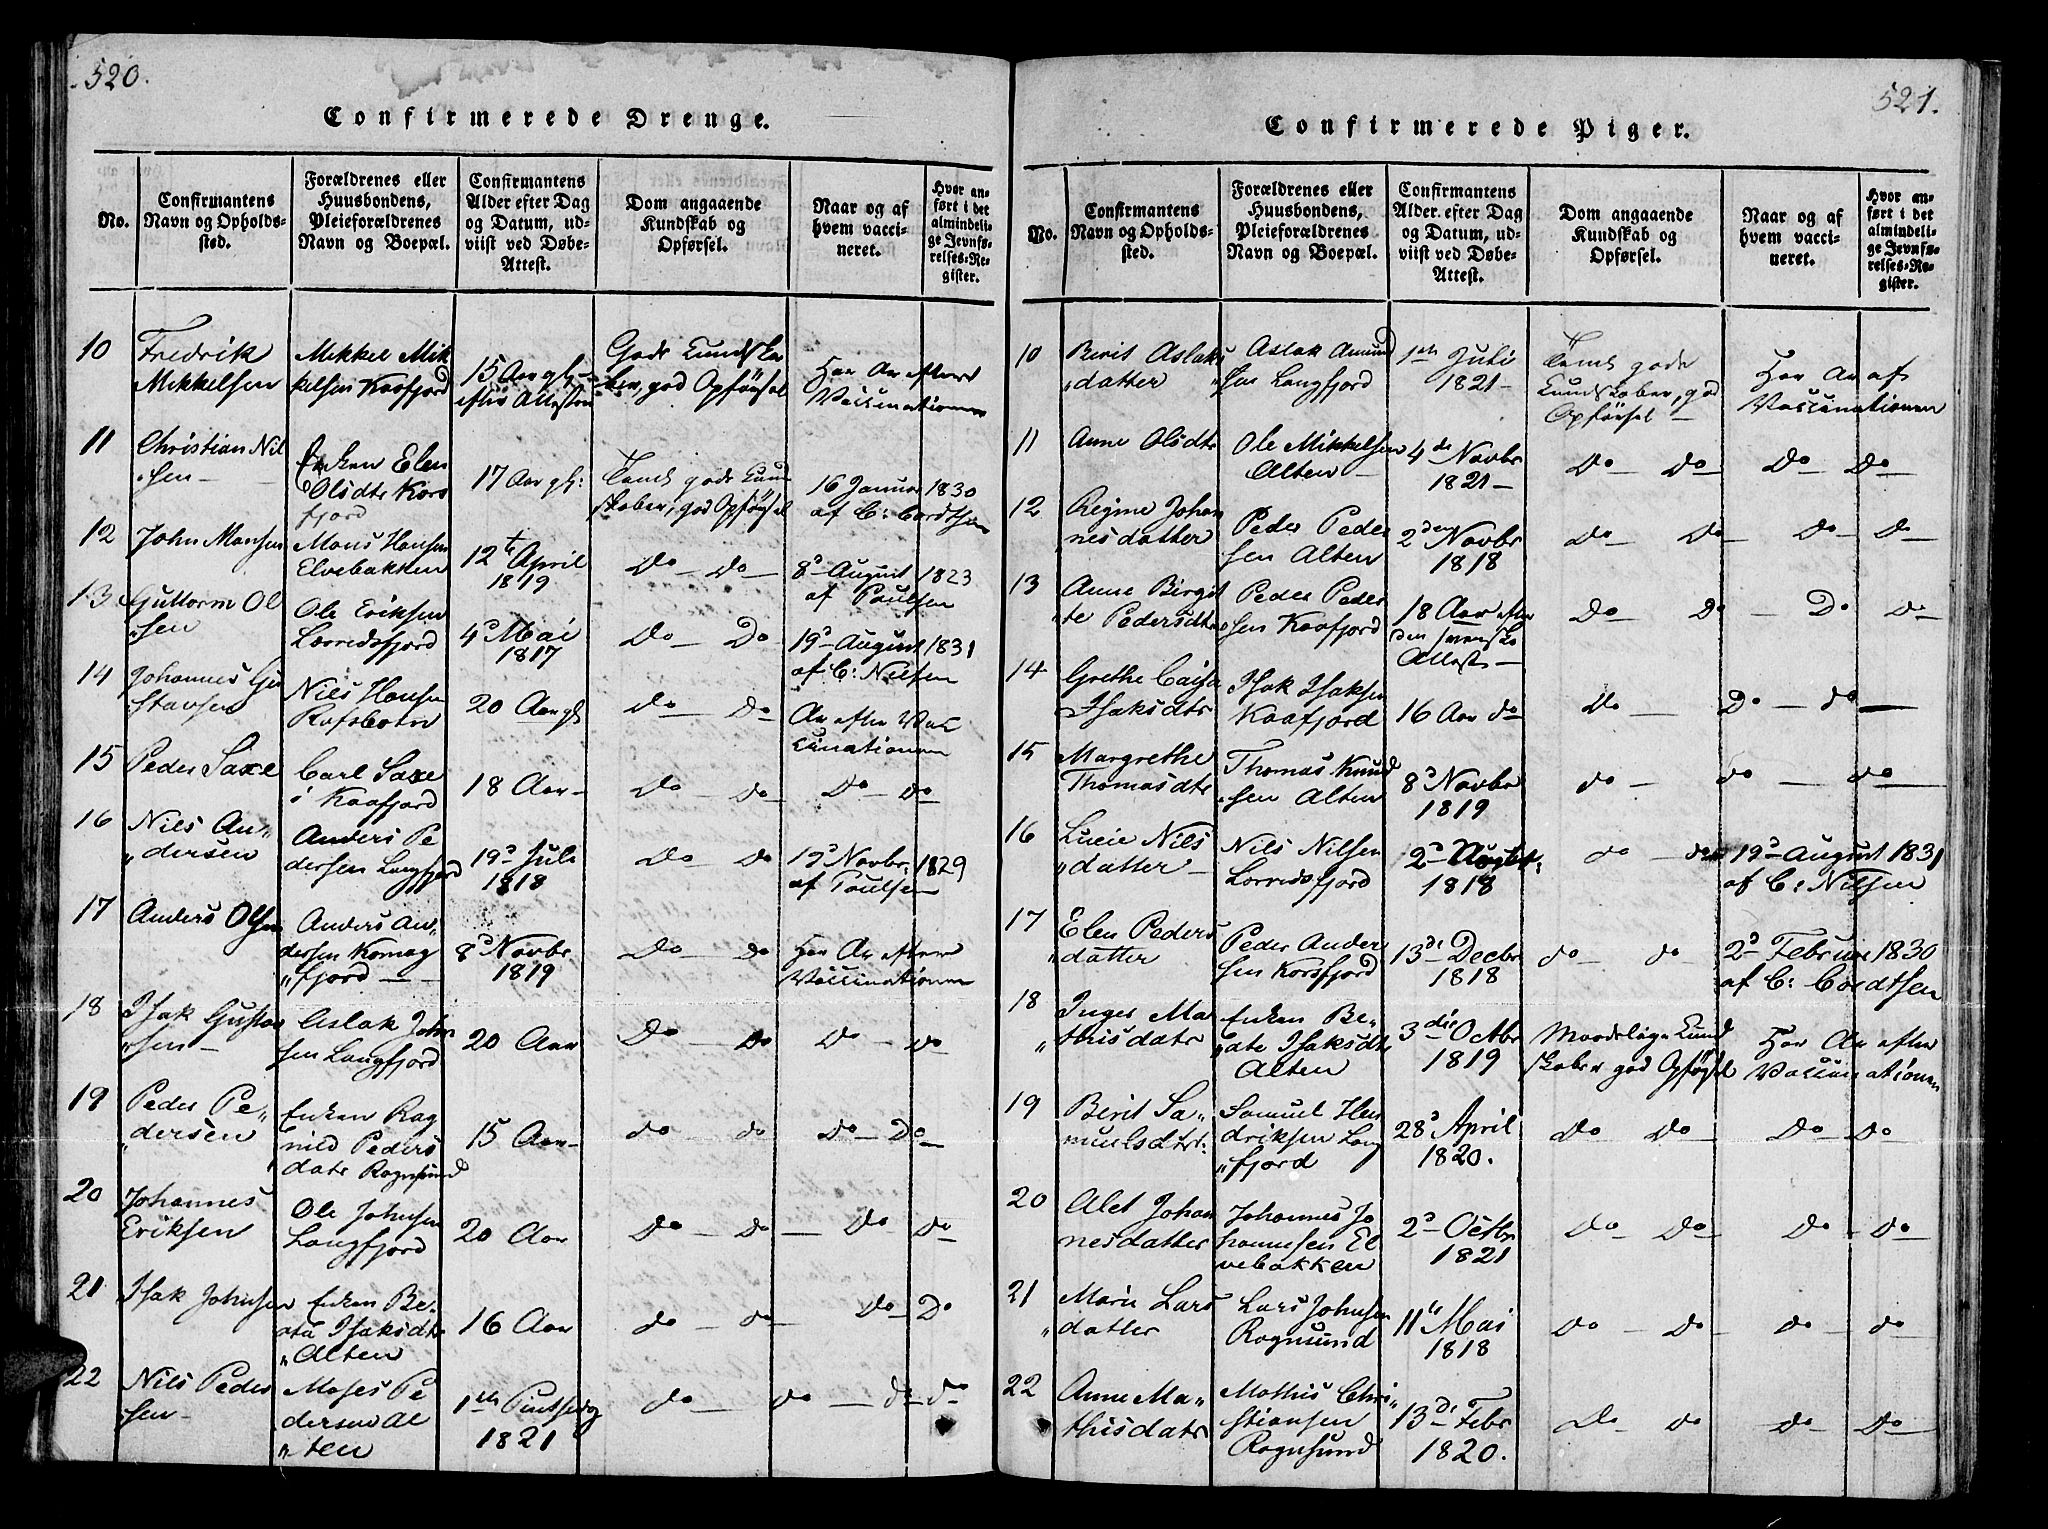 520.
Confirmerede Drenge.
No.
Confirmantens
Navn og Opholds-
sted.
Forældrenes eller
Huusbondens,
Pleieforældrenes
Navn og Boepæl.
Confirmantens
Alder efter Dag
og Datum, ud-
viist ved Døbe-
Attest.
Dom angaaende
Kundskab og
Opførsel.
Naar og af
hvem vacci-
neret.
Hvor an-
ført i det
almindeli-
ge Jevnfø-
relses-Re-
gister.
10
Fredrik
Mikkelsen
Mikkel Mik
kelsen Kaafjord
15 Aar gl:
efter Attesten
Gode Kundska
ber, god Opförsel
Har Ar efter
Vaccinationen
11
Christian Nil
sen
Enken Elen
Olsdtr Kors
fjord
17 Aar gl:
Taml gode Kund
skaber, god Opförsel
16 Januar 1830
af C: Cordtsen
12
John Monsen
Mons Hansen
Elvebakken
12te April
1819
Do Do
8d August 1823
af Poulsen
13
Guttorm Ol
sen
Ole Eriksen
Lerridsfjord
4d Mai
1817
Do Do
19d August 1831
af C: Nilsen
14
Johannes Gu
stavsen
Nils Hansen
Rafsbotn
20 Aar gl
Do Do
Ar efter Vac
cinationen
15
Peder Saxe
Carl Saxe
i Kaafjord
18 Aar
Do Do
Do Do
16
Nils An„
„dersen
Anders Pe
dersen Langfjord
19d Juli
1818
Do Do
19d Novbr. 1829
af Poulsen
17
Anders Olsen
Anders An„
dersen Komag
„fjord
8d Novbr
1819
Do Do
Har Ar efter
Vaccinationen
18
Isak Gustav
„sen
Aslak John
sen Langfjord
20 Aar
Do Do
Do Do
19
Peder Pe„
„dersen
Enken Rag
nild Peders
datr Rognsund
15 Aar
do do
Do Do
20
Johannes
Eriksen
Ole Johnsen
Langfjord
20 Aar
Do do
Do Do
21
Isak Johnsen
Enken Be„
ata Isaksdtr
„Alten
16 Aar
do do
Do Do
22
Nils Peder
sen
Moses Pe
dersen Al
„ten
1ste Pintsedag
1821
do do
do do
521.
Confirmerede Piger.
No.
Confirmantens
Navn og Opholds-
sted.
Forældrenes eller
Huusbondens,
Pleieforældrenes
Navn og Boepæl.
Confirmantens
Alder efter Dag
og Datum, ud-
viist ved Døbe-
Attest.
Dom angaaende
Kundskab og
Opførsel.
Naar og af
hvem vacci-
neret.
Hvor an-
ført i det
almindeli-
ge Jevnfø-
relses-Re-
gister.
10
Berit Aslaks
„datter
Aslak Amund
„sen Langfjord
1ste Juli
1821
Taml gode
Kundskaber, god
Opförsel
Har Ar af
Vaccinationen
11
Anne Olsdtr
Ole Mikkelsen
Alten
4de Novbr
1821
Do Do
Do Do
12
Regine Johan
nesdatter
Peder Peder
sen Alten
2den Novbr
1818
Do Do
Do Do
13
Anne Birgit
te Pedersdtr
Peder Peder
sen Kaafjord
18 Aar efter
den svenske
Attest
Do Do
Do Do
14
Grethe Caisa
Isaksdtr
Isak Isaksen
Kaafjord
16 Aar do
Do
Do do
15
Margrethe
Thomasdtr
Thomas Knud
sen Alten
8d Novbr
1819
do
do do
16
Lucie Nils
„datter
Nils Nilsen
Lerridsfjord
2d August
1818
do do
19d August 1831
af C: Nilsen
17
Elen Peders
„datter
Peder Ander
sen Korsfjord
13de Decbr
1818
do do
2d Februar 1830
af C: Cordtsen
18
Inger Ma
„thisdatr
Enken Be„
„ate Isaksdtr
Alten
3die Octbr
1819
Maadelige Kund
skaber god Opförsel
Har Ar efter
Vaccinationen
19
Berit Sa„
muelsdtr.
Samuel Hen
driksen Lang
„fjord
28d April
1820.
Do Do
Do Do
20
Alet Johan
nesdatter
Johannes Jo
hannesen El
vebakken
2d Octbr
1821
Do do
Do Do
21
Marie Lars
„datter
Lars Johnsen
Rognsund
11te Mai
1818
do do
do do
22
Anne Ma„
thisdatr
Mathis Chri„
stiansen
Rognsund
13de Febr
1820.
Do do
do Do